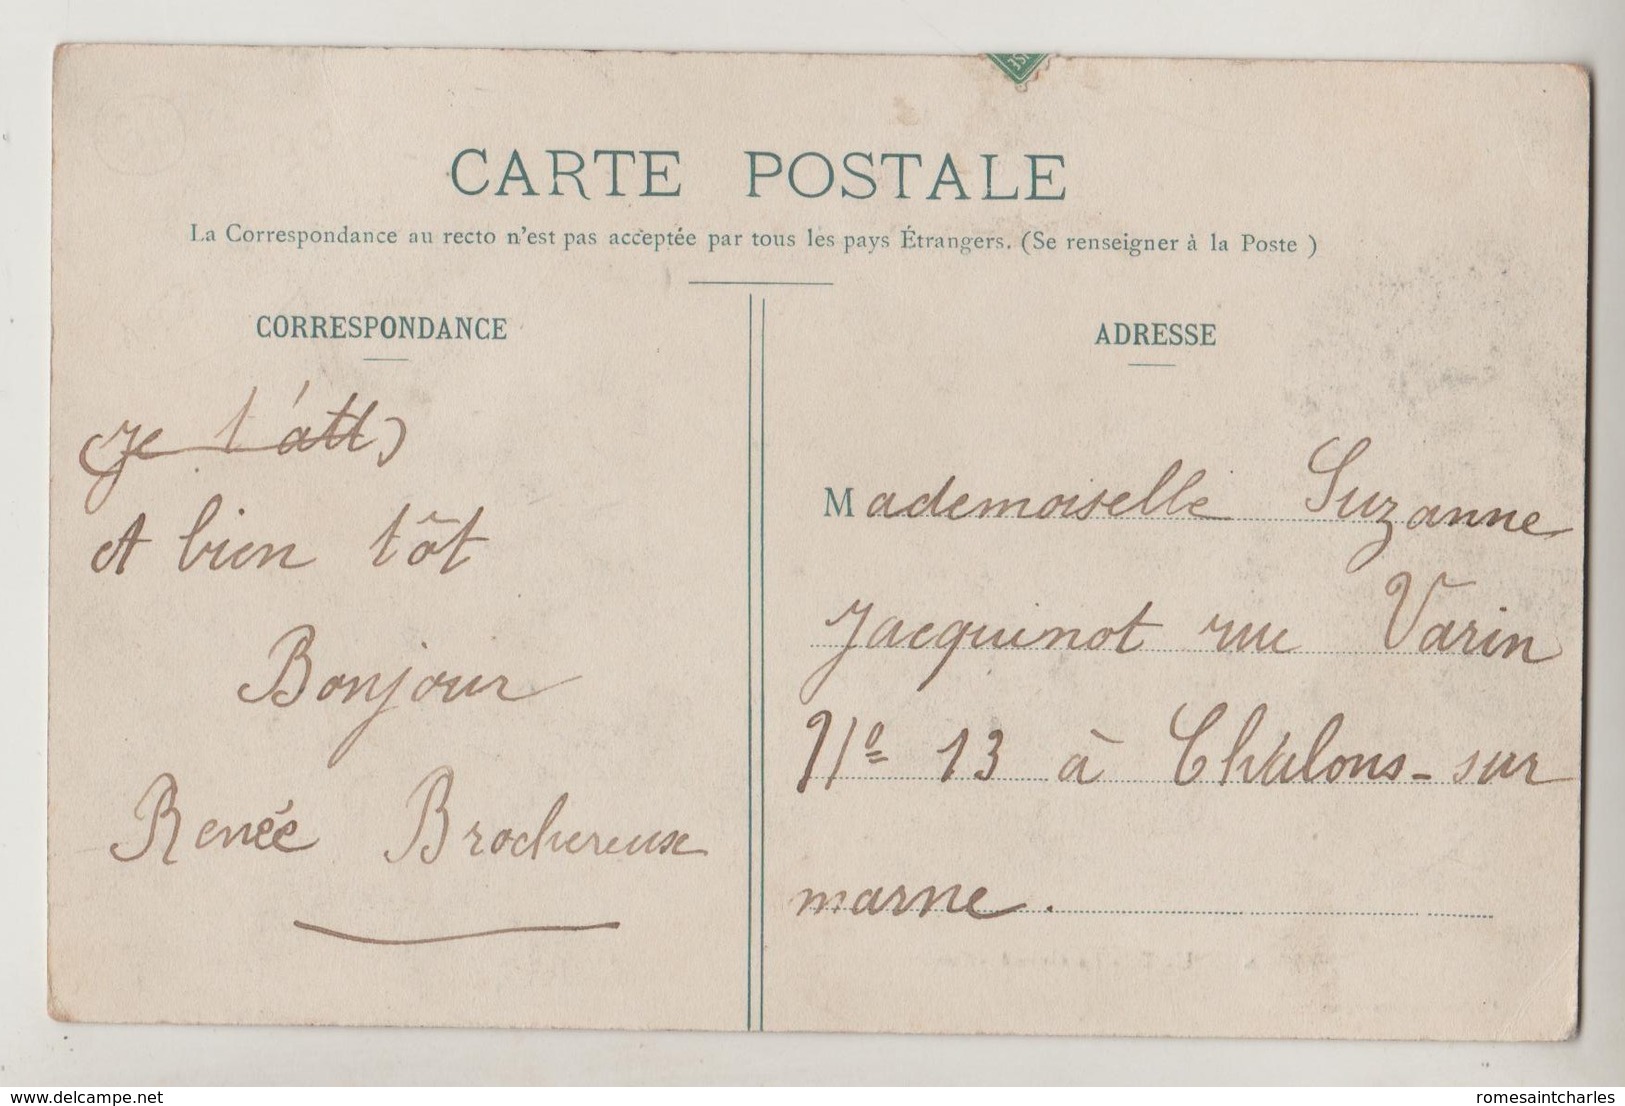 CARTE POSTALE
La Correspondance au recto n'est pas acceptée par tous les pays Étrangers. (Se renseigner à la Poste )
CORRESPONDANCE
(je t'att)
A bien tôt
Bonjour
Renée Brochereux
ADRESSE
Mademoiselle Suzanne
Jacquinot rue Varin
No 13 à Châlons-sur
marne.
www.delcampe.net
romesaintcharles